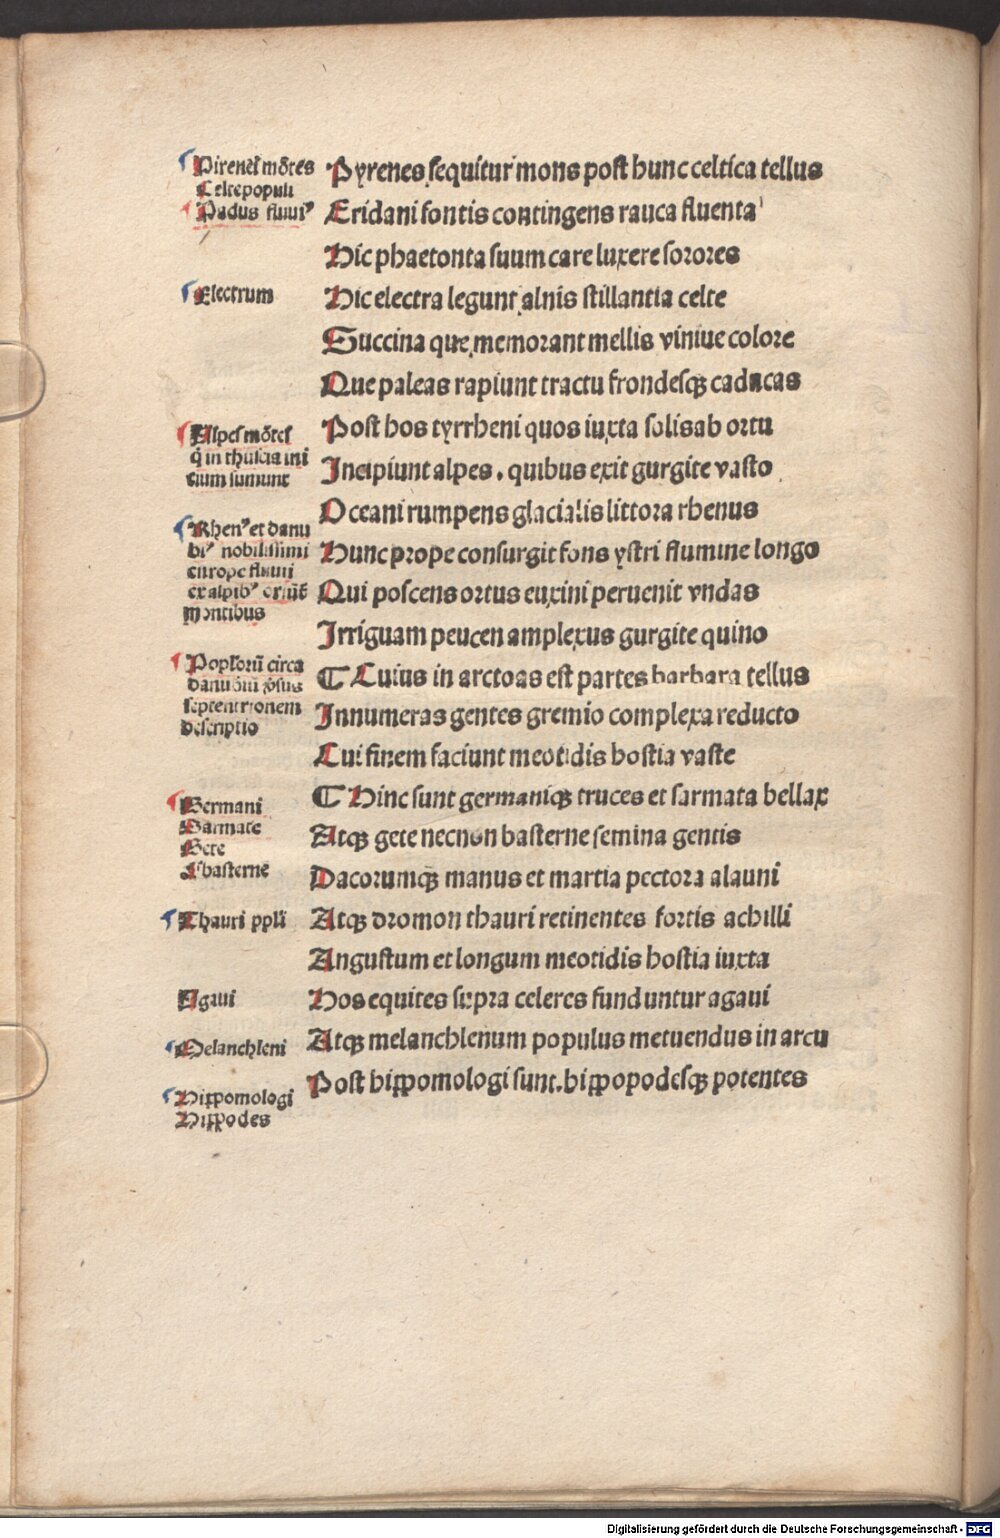 Pirenes mōtes
Celte populi
Padus fluuiꝰ
Pyrenes sequitur mons post hunc celtica tellus
Eridani fontis contingens rauca fluenta
Hic phaetonta suum care luxere sorores
Electrum
Hic electra legunt alnis stillantia celte
Succina que memorant mellis viniue colore
Que paleas rapiunt tractu frondesqꝫ caducas
Alpes mōtes
q̄ in thuscia ini
cium sumunt
Post hos tyrrheni quos iuxta solis ab ortu
Incipiunt alpes . quibus exit gurgite vasto
Oceani rumpens glacialis littora rhenus
Rhenꝰ et danu
biꝰ nobilissimi
europe fluuii
ex alpibꝰ exeūt
montibus
Hunc prope consurgit fons ystri flumine longo
Qui poscens ortus euxini peruenit vndas
Irriguam peucen amplexus gurgite quino
Poplorū circa
danubiū ꝓsus
septentrionem
descriptio
¶ Cuius in arctoas est partes barbara tellus
Innumeras gentes gremio complexa reducto
Cui finem faciunt meotidis hostia vaste
Germani
Sarmate
Gete
Et basterne
¶ Hinc sunt germaniqꝫ truces et sarmata bellax
Atqꝫ gete necnon basterne semina gentis
Dacorumqꝫ manus et martia pectora alauni
Thauri ppli
Atqꝫ dromon thauri retinentes fortis achilli
Angustum et longum meotidis hostia iuxta
Agaui
Hos equites supra celeres funduntur agaui
Melanchleni
Atqꝫ melanchlenum populus metuendus in arcu
Hippomologi
Hippodes
Post hippomologi sunt . hippopodesqꝫ potentes
Digitalisierung gefördert durch die Deutsche Forschungsgemeinschaft - DFG